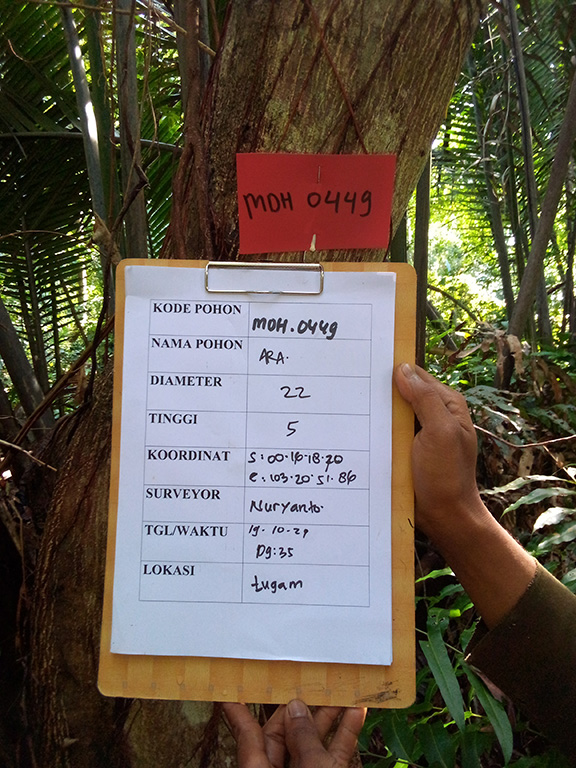 MDH 0449
KODE POHON MDH.0449
NAMA POHON ARA.
DIAMETER 22
TINGGI 5
KOORDINAT S:00.16.18.20
E:103.20.51.86
SURVEYOR Nuryanto.
TGL/WAKTU 19-10-21
09:35
LOKASI tugam